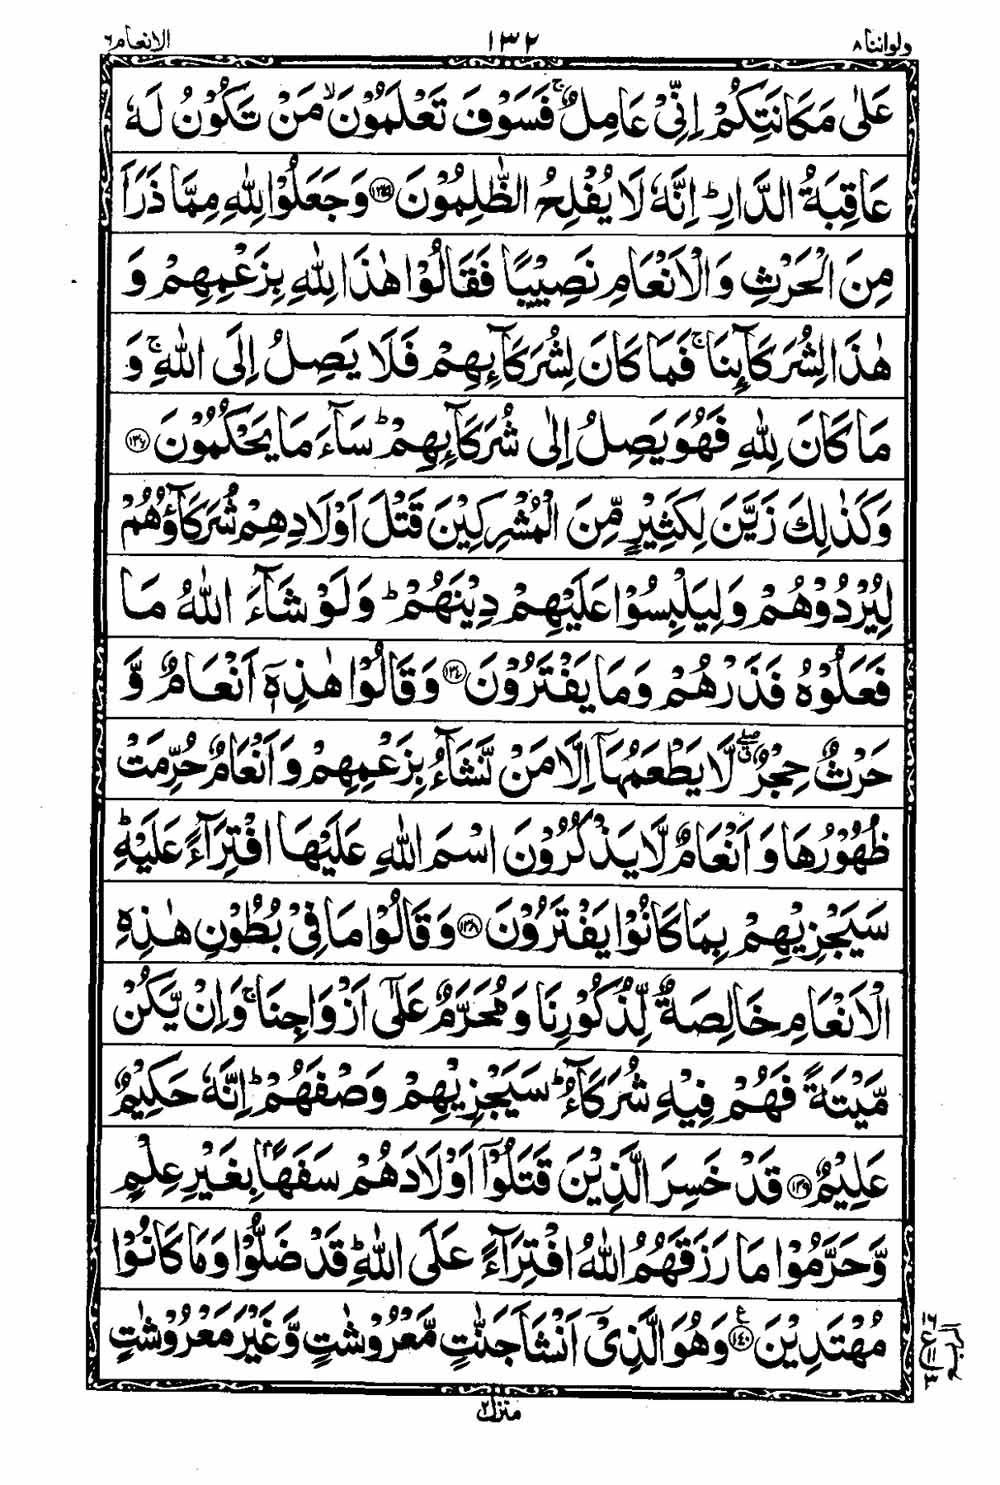 ولواننا ۸ ۱۳۲ الانعام ۶
عَلٰى مَكَانَتِكُمْ اِنِّىْ عَامِلٌ ۚ فَسَوْفَ تَعْلَمُوْنَ ۙ مَنْ تَكُوْنُ لَهٗ
عَاقِبَةُ الدَّارِ ؕ اِنَّهٗ لَا يُفْلِحُ الظّٰلِمُوْنَ ﴿۱۳۵﴾ وَجَعَلُوْا لِلّٰهِ مِمَّا ذَرَاَ
مِنَ الْحَرْثِ وَالْاَنْعَامِ نَصِيْبًا فَقَالُوْا هٰذَا لِلّٰهِ بِزَعْمِهِمْ وَ
هٰذَا لِشُرَكَآئِنَا ۚ فَمَا كَانَ لِشُرَكَآئِهِمْ فَلَا يَصِلُ اِلَى اللّٰهِ ۚ وَ
مَا كَانَ لِلّٰهِ فَهُوَ يَصِلُ اِلٰى شُرَكَآئِهِمْ ؕ سَآءَ مَا يَحْكُمُوْنَ ﴿۱۳۶﴾
وَكَذٰلِكَ زَيَّنَ لِكَثِيْرٍ مِّنَ الْمُشْرِكِيْنَ قَتْلَ اَوْلَادِهِمْ شُرَكَآؤُهُمْ
لِيُرْدُوْهُمْ وَلِيَلْبِسُوْا عَلَيْهِمْ دِيْنَهُمْ ؕ وَلَوْ شَآءَ اللّٰهُ مَا
فَعَلُوْهُ فَذَرْهُمْ وَمَا يَفْتَرُوْنَ ﴿۱۳۷﴾ وَقَالُوْا هٰذِهٖۤ اَنْعَامٌ وَّ
حَرْثٌ حِجْرٌ ۖ لَّا يَطْعَمُهَاۤ اِلَّا مَنْ نَّشَآءُ بِزَعْمِهِمْ وَاَنْعَامٌ حُرِّمَتْ
ظُهُوْرُهَا وَاَنْعَامٌ لَّا يَذْكُرُوْنَ اسْمَ اللّٰهِ عَلَيْهَا افْتِرَآءً عَلَيْهِ ؕ
سَيَجْزِيْهِمْ بِمَا كَانُوْا يَفْتَرُوْنَ ﴿۱۳۸﴾ وَقَالُوْا مَا فِىْ بُطُوْنِ هٰذِهِ
الْاَنْعَامِ خَالِصَةٌ لِّذُكُوْرِنَا وَمُحَرَّمٌ عَلٰٓى اَزْوَاجِنَا ۚ وَاِنْ يَّكُنْ
مَّيْتَةً فَهُمْ فِيْهِ شُرَكَآءُ ؕ سَيَجْزِيْهِمْ وَصْفَهُمْ ؕ اِنَّهٗ حَكِيْمٌ
عَلِيْمٌ ﴿۱۳۹﴾ قَدْ خَسِرَ الَّذِيْنَ قَتَلُوْۤا اَوْلَادَهُمْ سَفَهًۢا بِغَيْرِ عِلْمٍ
وَّحَرَّمُوْا مَا رَزَقَهُمُ اللّٰهُ افْتِرَآءً عَلَى اللّٰهِ ؕ قَدْ ضَلُّوْا وَمَا كَانُوْا
مُهْتَدِيْنَ ﴿۱۴۰﴾ ع وَهُوَ الَّذِىْۤ اَنْشَاَ جَنّٰتٍ مَّعْرُوْشٰتٍ وَّغَيْرَ مَعْرُوْشٰتٍ
منزل ۲